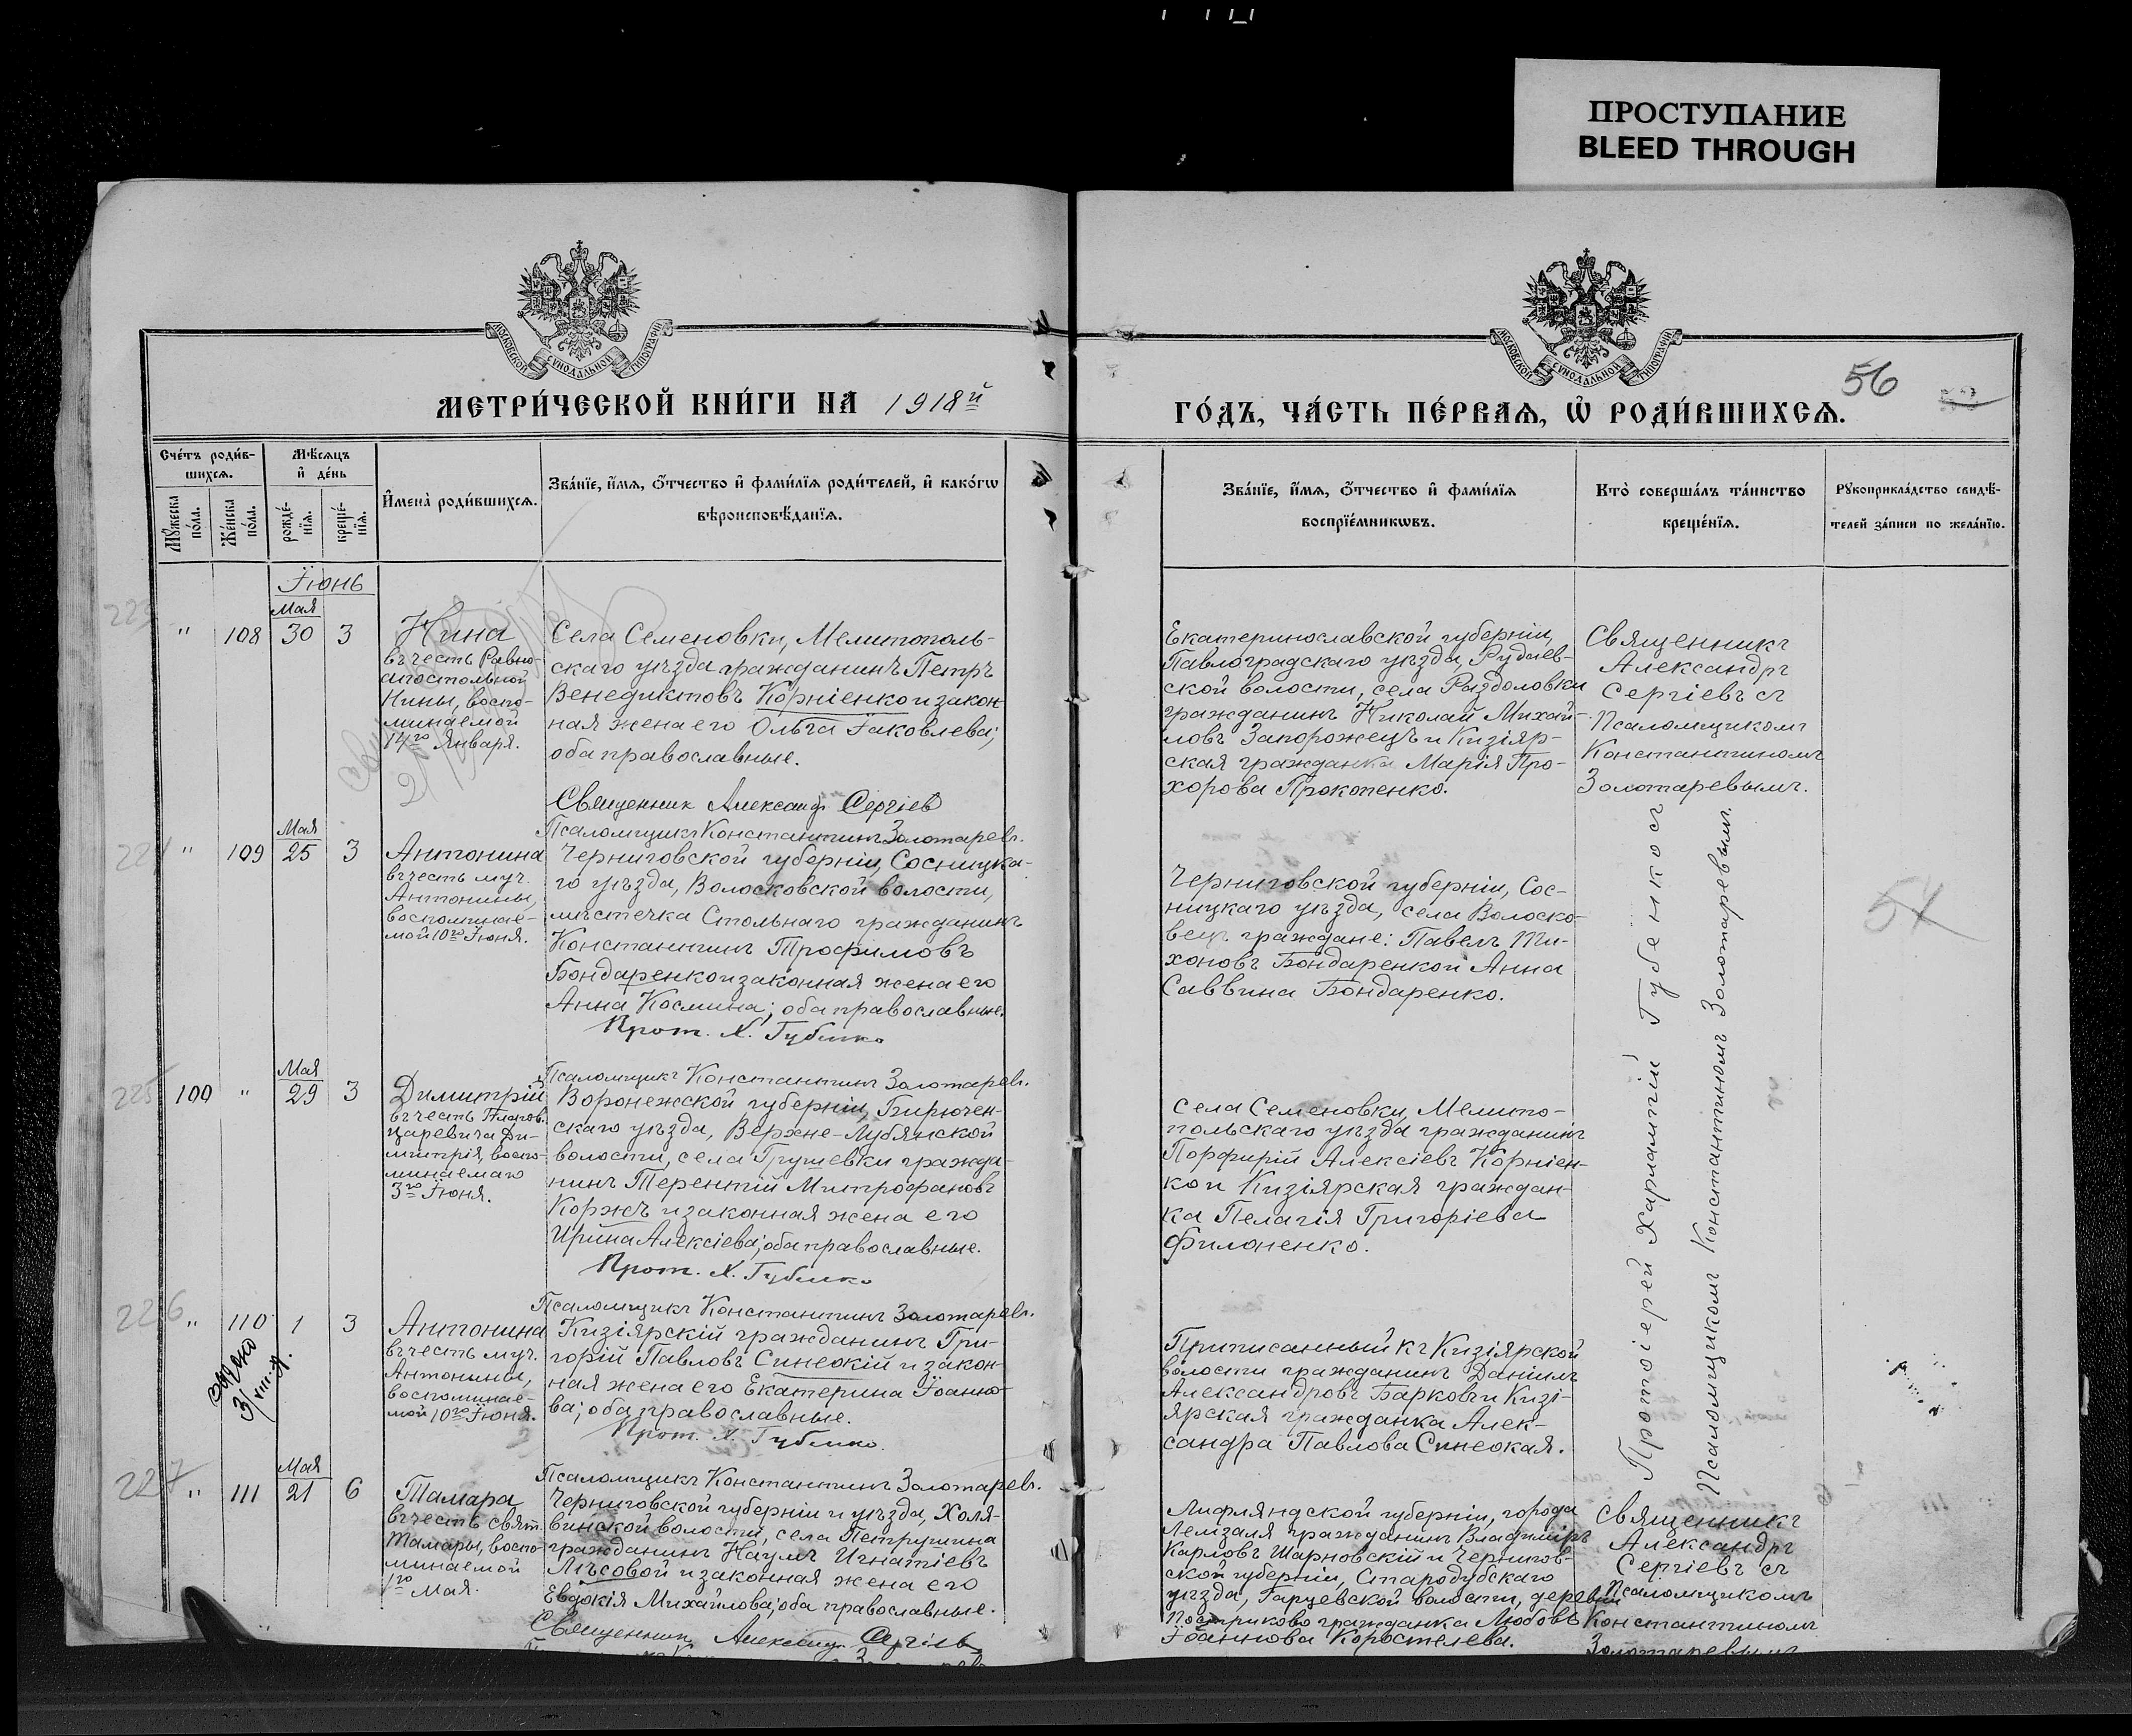 ПРОСТУПАНИЕ
BLEED THROUGH
МОСКОВСКОЙ СѴНОДАЛЬНОЙ ТИПОГРАФІИ
МОСКОВСКОЙ СѴНОДАЛЬНОЙ ТИПОГРАФІИ
МЕТРИ́ЧЕСКОЙ КНИ́ГИ НА 1918й
ГО́ДЪ, ЧА́СТЬ ПЕ́РВАѦ, Ѡ҆ РОДИ́ВШИХСѦ.
56
Сче́тъ роди́в-
шихсѧ.
Мꙋ́жеска
по́ла.
Же́нска
по́ла.
Мѣ́сѧцъ
и҆ де́нь
рожде́-
нїѧ.
креще́-
нїѧ.
И҆мена̀ роди́вшихсѧ.
Зва́нїе, и҆́мѧ, ѻ҆́тчество и҆ фами́лїѧ роди́телей, и҆ како́гѡ
вѣроисповѣ́данїѧ.
Зва́нїе, и҆́мѧ, ѻ҆́тчество и҆ фами́лїѧ
воспрїе́мникѡвъ.
Кто̀ соверша́лъ та́инство
креще́нїѧ.
Рꙋкоприкла́дство свидѣ́-
телей за́писи по жела́нїю.
Їюнь
223
Мая
" 108 30 3
Нина
въ честь Равно-
апостольной
Нины, воспо-
минаемой
14го Января.
Села Семеновки, Мелитополь-
скаго уѣзда гражданинъ Петръ
Венедиктовъ Корніенко и закон-
ная жена его Ольга Їаковлева;
оба православные.
Священник Александр Сергіев
Псаломщикъ Константинъ Золотаревъ.
Екатеринославской губерніи,
Павлоградскаго уѣзда, Рудаев-
ской волости, села Раздоловки
гражданинъ Николай Михай-
ловъ Запорожецъ и Кизіяр-
ская гражданка Марія Про-
хорова Прокопенко.
Священникъ
Александръ
Сергіевъ съ
Псаломщикомъ
Константиномъ
Золотаревымъ.
224
Мая
" 109 25 3
Антонина
въ честь муч.
Антонины,
воспоминае-
мой 10го Їюня.
Черниговской губерніи, Сосницка-
го уѣзда, Волосковской волости,
мѣстечка Стольнаго гражданинъ
Константинъ Трофимовъ
Бондаренко и законная жена его
Анна Космина; оба православные.
Прот. Х. Губенко
Псаломщикъ Константинъ Золотаревъ.
Черниговской губерніи, Сос-
ницкаго уѣзда, села Волоско-
вецъ граждане: Павелъ Ти-
хоновъ Бондаренко и Анна
Саввина Бондаренко.
Протоіерей Харлампій Губенко съ
Псаломщикомъ Константиномъ Золотаревымъ.
54
225
Мая
100 " 29 3
Димитрій
въ честь Благов.
Царевича Ди-
митрія, воспо-
минаемаго
3го Їюня.
Воронежской губерніи, Бирючен-
скаго уѣзда, Верхне-Лубянской
волости, села Грушевки гражда-
нинъ Терентій Митрофановъ
Коржъ и законная жена его
Ирина Алексіева; оба православные.
Прот. Х. Губенко
Псаломщикъ Константинъ Золотаревъ.
Села Семеновки, Мелито-
польскаго уѣзда гражданинъ
Порфирій Алексіевъ Корніен-
ко и Кизіярская граждан-
ка Пелагія Григоріева
Филоненко.
226
" 110 1 3
Антонина
въ честь муч.
Антонины,
воспоминае-
мой 10го Їюня.
Кизіярскій гражданинъ Гри-
горій Павловъ Синеокій и закон-
ная жена его Екатерина Їоанно-
ва; оба православные.
Прот. Х. Губенко.
Псаломщикъ Константинъ Золотаревъ.
Приписанный къ Кизіярской
волости гражданинъ Даніилъ
Александровъ Барковъ и Кизі-
ярская гражданка Алек-
сандра Павлова Синеокая.
227
Мая
" 111 21 6
Тамара
въ честь свят.
Тамары, воспо-
минаемой
1го Мая.
Черниговской губерніи и уѣзда, Холя-
винской волости, села Петрушина
гражданинъ Наумъ Игнатіевъ
Лѣсовой и законная жена его
Евдокія Михайлова; оба православные.
Священник Александр Сергіев
Лифляндской губерніи, города
Лемзаля гражданинъ Владиміръ
Карловъ Шарновскій и Чернигов-
ской губерніи, Стародубскаго
уѣзда, Гарцевской волости, деревни
гражданка Любовь
Їоаннова Коростелева.
Священникъ
Александръ
Сергіевъ съ
Псаломщикомъ
Константиномъ
Золотаревымъ